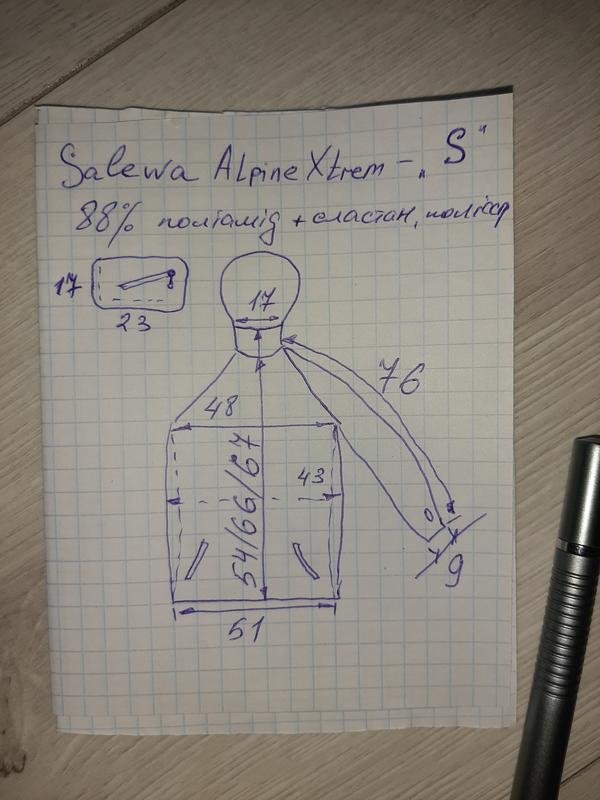 Salewa AlpineXtrem - „S"
88% поліамід + еластан, поліестр
17
23
17
76
48
54/66/67
43
9
51